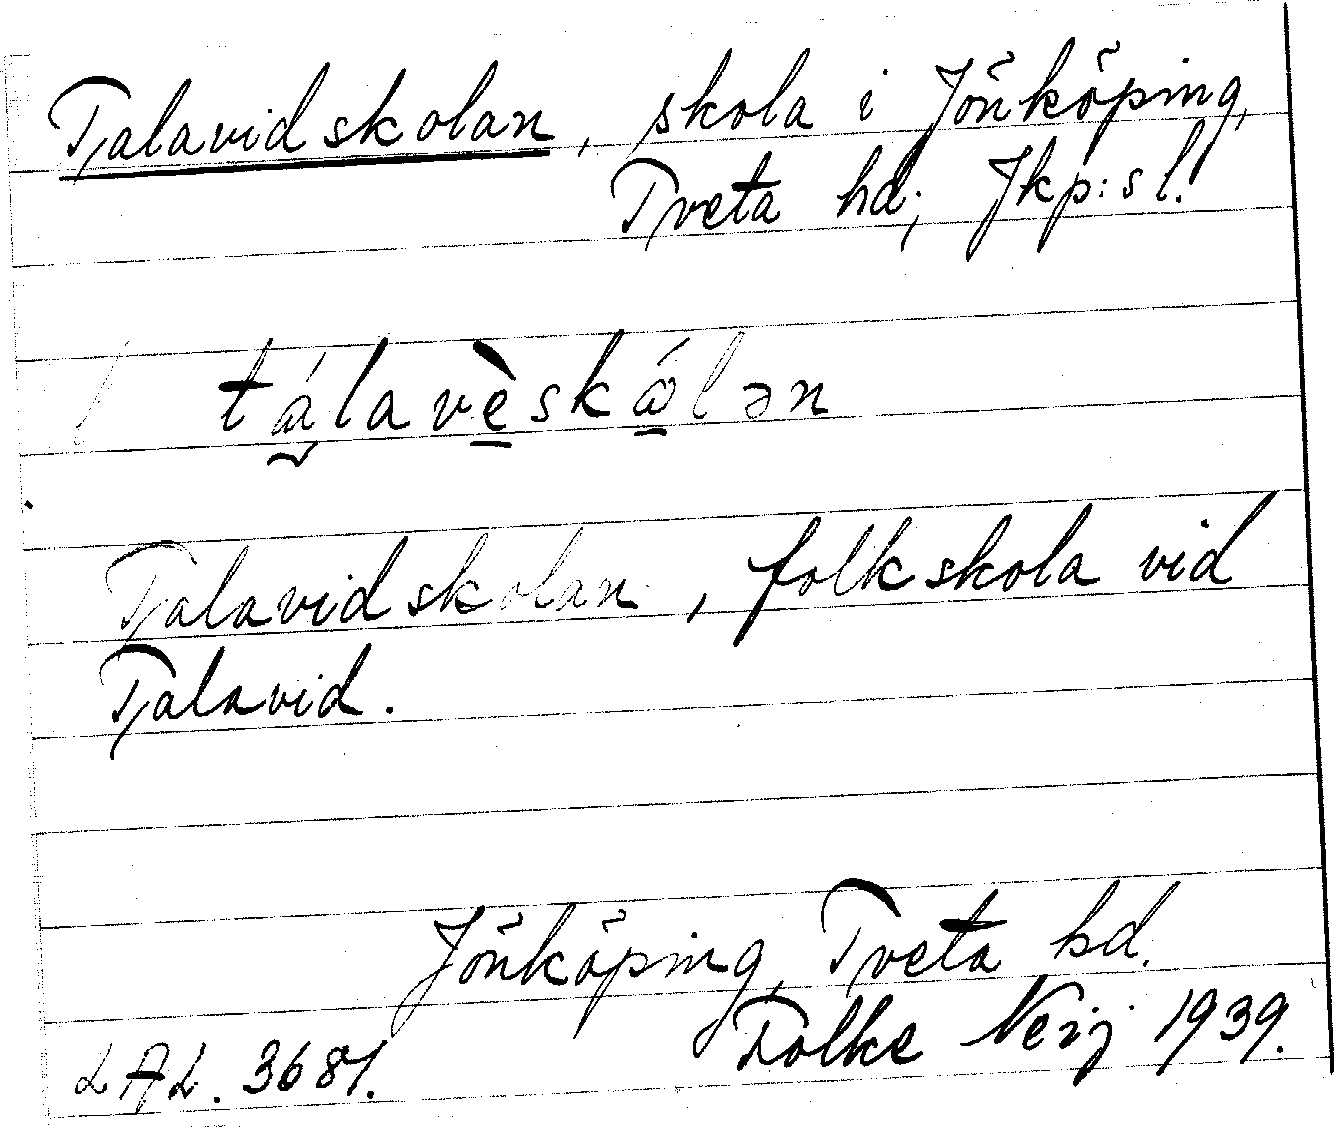 Talavidskolan, skola i Jönköping,
Tveta hd; Jkp:s l.
tálavèskålən
Talavidskolan, folkskola vid
Talavid.
Jönköping, Tveta hd.
LAL. 3681. Folke Neij 1939.